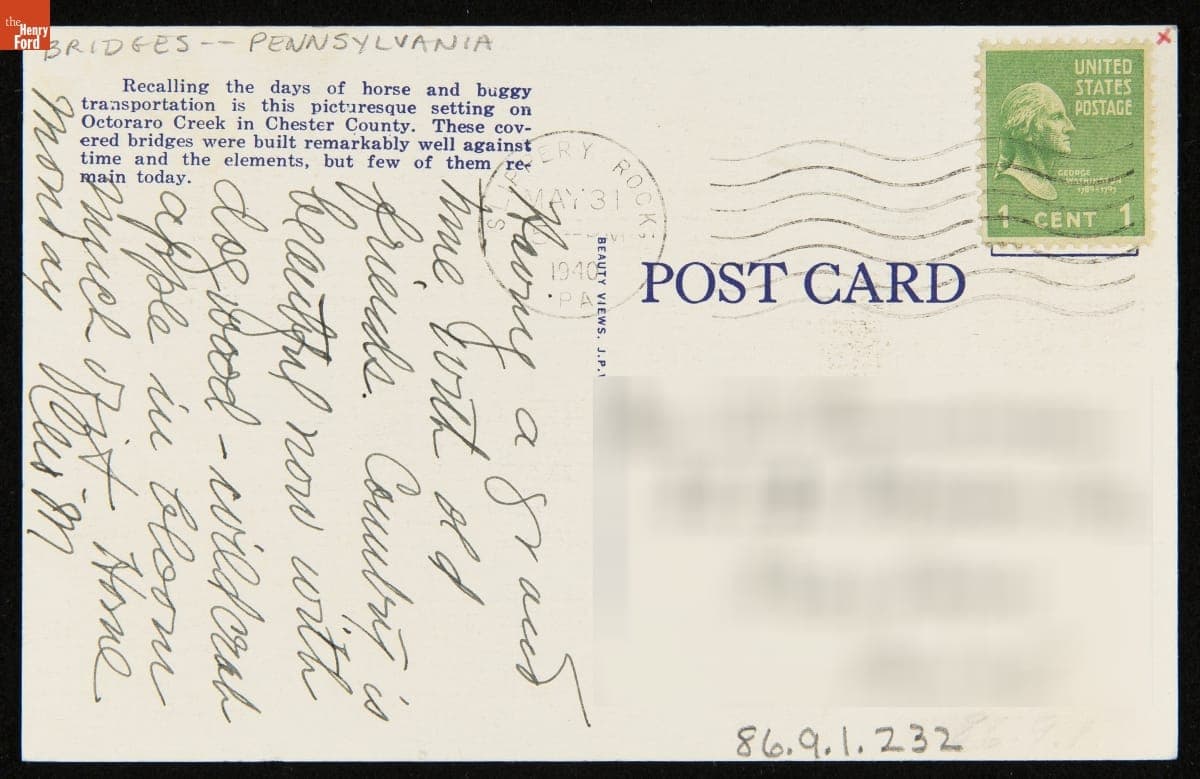 the
Henry
Ford
BRIDGES -- PENNSYLVANIA
Recalling the days of horse and buggy
transportation is this picturesque setting on
Octoraro Creek in Chester County. These cov-
ered bridges were built remarkably well against
time and the elements, but few of them re-
main today.
UNITED
STATES
POSTAGE
GEORGE
WASHINGTON
1789-1797
1 CENT 1
SLIPPERY ROCK
MAY 31
1940
PA
POST CARD
BEAUTY VIEWS, J.P.
Having a grand
time with old
friends. Country is
beautiful now with
dogwood - wildcrab
apple in bloom
much of it Home
Monday
86.9.1.232